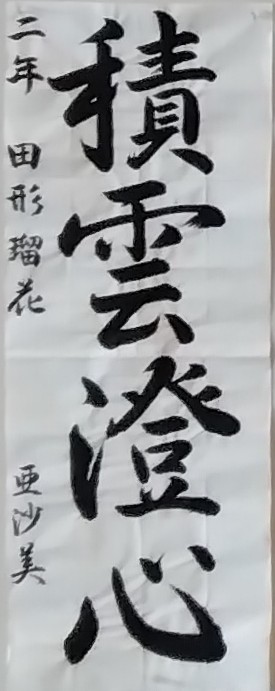 積雲澄心
二年 田形瑠花 亜沙美